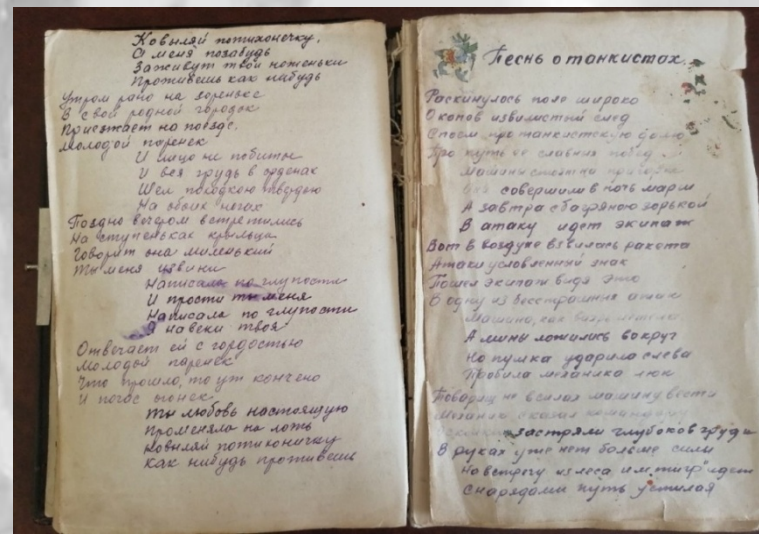 Ковыляй потихонечку,
А меня позабудь
Заживут твои ноженьки
Проживешь как нибудь
Утром рано на зореньке
В свой родной городок
Приезжает на поезде.
Молодой паренек
И лицо не побитое
И вся грудь в орденах
Шел походкою твердою
На обоих ногах
Поздно вечером встретились
На ступеньках крыльца
Говорит она миленький
Ты меня извини
Написала по глупости
И прости ты меня
Написала по глупости
Я навеки твоя
Отвечает ей с гордостью
Молодой паренек
Что прошло, то ут кончено
И погас огонек
Ты любовь настоящую
Променяла на ложь
Ковыляй потихоничку
Как нибудь проживешь
Песнь о танкистах.
Раскинулось поле широко
Окопов извилистый след
Споем про танкистскую долю
Про путь ее славных побед
Машины
совершили в ночь марш
А завтра с багряною зорькой
В атаку идет экипаж
Вот в воздухе взвилась ракета
Атаки условленный знак
Пошел экипаж видя это
В одну из бесстрашных атак
Машина, как вихрь
А мины ложились вокруг
Но пушка ударила слева
Пробила механика люк
Товарищ не в силах машину вести
Механик сказал командиру
застряли глубоко в груди
В руках уже нет больше силы
На встречу из леса идет
Снарядами путь устилая